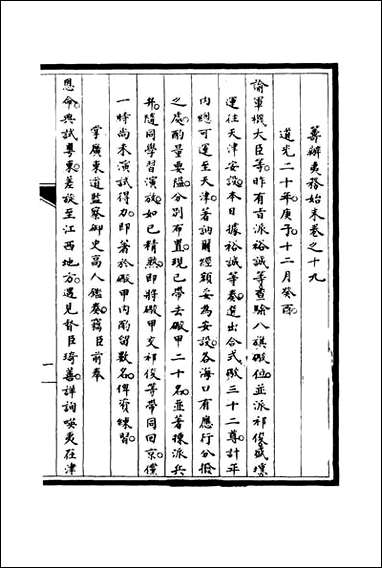 籌辦夷務始末卷之十九
道光二十年庚子十二月癸酉
諭軍機大臣等昨有旨派裕誠等查驗八旗礮位並派祁俊盛壎
運往天津安設本日據裕誠等奏選出合式礮三十二尊計平
內總可運至天津著訥爾經額妥為安設各海口有應行分撥
之處酌量要隘分別布置現已帶去礮甲二十名並著揀派兵
弁隨同學習演放如已精熟即將礮甲交祁俊等帶同回京僕
一時尚未演試得力即著於礮甲內酌留數名俾資練習
掌廣東道監察御史高人鑑奏竊臣前奉
恩命典試粵東差旋至江西地方遇見督臣琦善詳詢唊夷在津
一